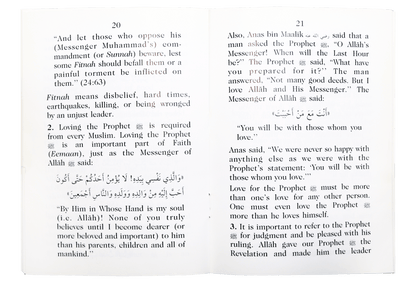 20
"And let those who oppose his
(Messenger Muhammad's) com-
mandment (or Sunnah) beware, lest
some Fitnah should befall them or a
painful torment be inflicted on
them." (24:63)
Fitnah means disbelief, hard times,
earthquakes, killing, or being wronged
by an unjust leader.
2. Loving the Prophet ﷺ is required
from every Muslim. Loving the Prophet
ﷺ is an important part of Faith
(Eemaan), just as the Messenger of
Allâh ﷺ said:
«وَالَّذِي نَفْسِي بِيَدِهِ! لَا يُؤْمِنُ أَحَدُكُمْ حَتَّى أَكُونَ
أَحَبَّ إِلَيْهِ مِنْ وَالِدِهِ وَوَلَدِهِ وَالنَّاسِ أَجْمَعِينَ»
"By Him in Whose Hand is my soul
(i.e. Allâh)! None of you truly
believes until I become dearer (or
more beloved and important) to him
than his parents, children and all of
mankind."
21
Also, Anas bin Maalik رضي الله عنه said that a
man asked the Prophet ﷺ, "O Allâh's
Messenger! When will the Last Hour
be?" The Prophet ﷺ said, "What have
you prepared for it?" The man
answered, "Not many good deeds. But I
love Allâh and His Messenger." The
Messenger of Allâh ﷺ said:
«أَنْتَ مَعَ مَنْ أَحْبَبْتَ»
"You will be with those whom you
love."
Anas said, "We were never so happy with
anything else as we were with the
Prophet's statement: 'You will be with
those whom you love.'"
Love for the Prophet ﷺ must be more
than one's love for any other person.
One must even love the Prophet ﷺ
more than he loves himself.
3. It is important to refer to the Prophet
ﷺ for judgment and be pleased with his
ruling. Allâh gave our Prophet ﷺ the
Revelation and made him the leader